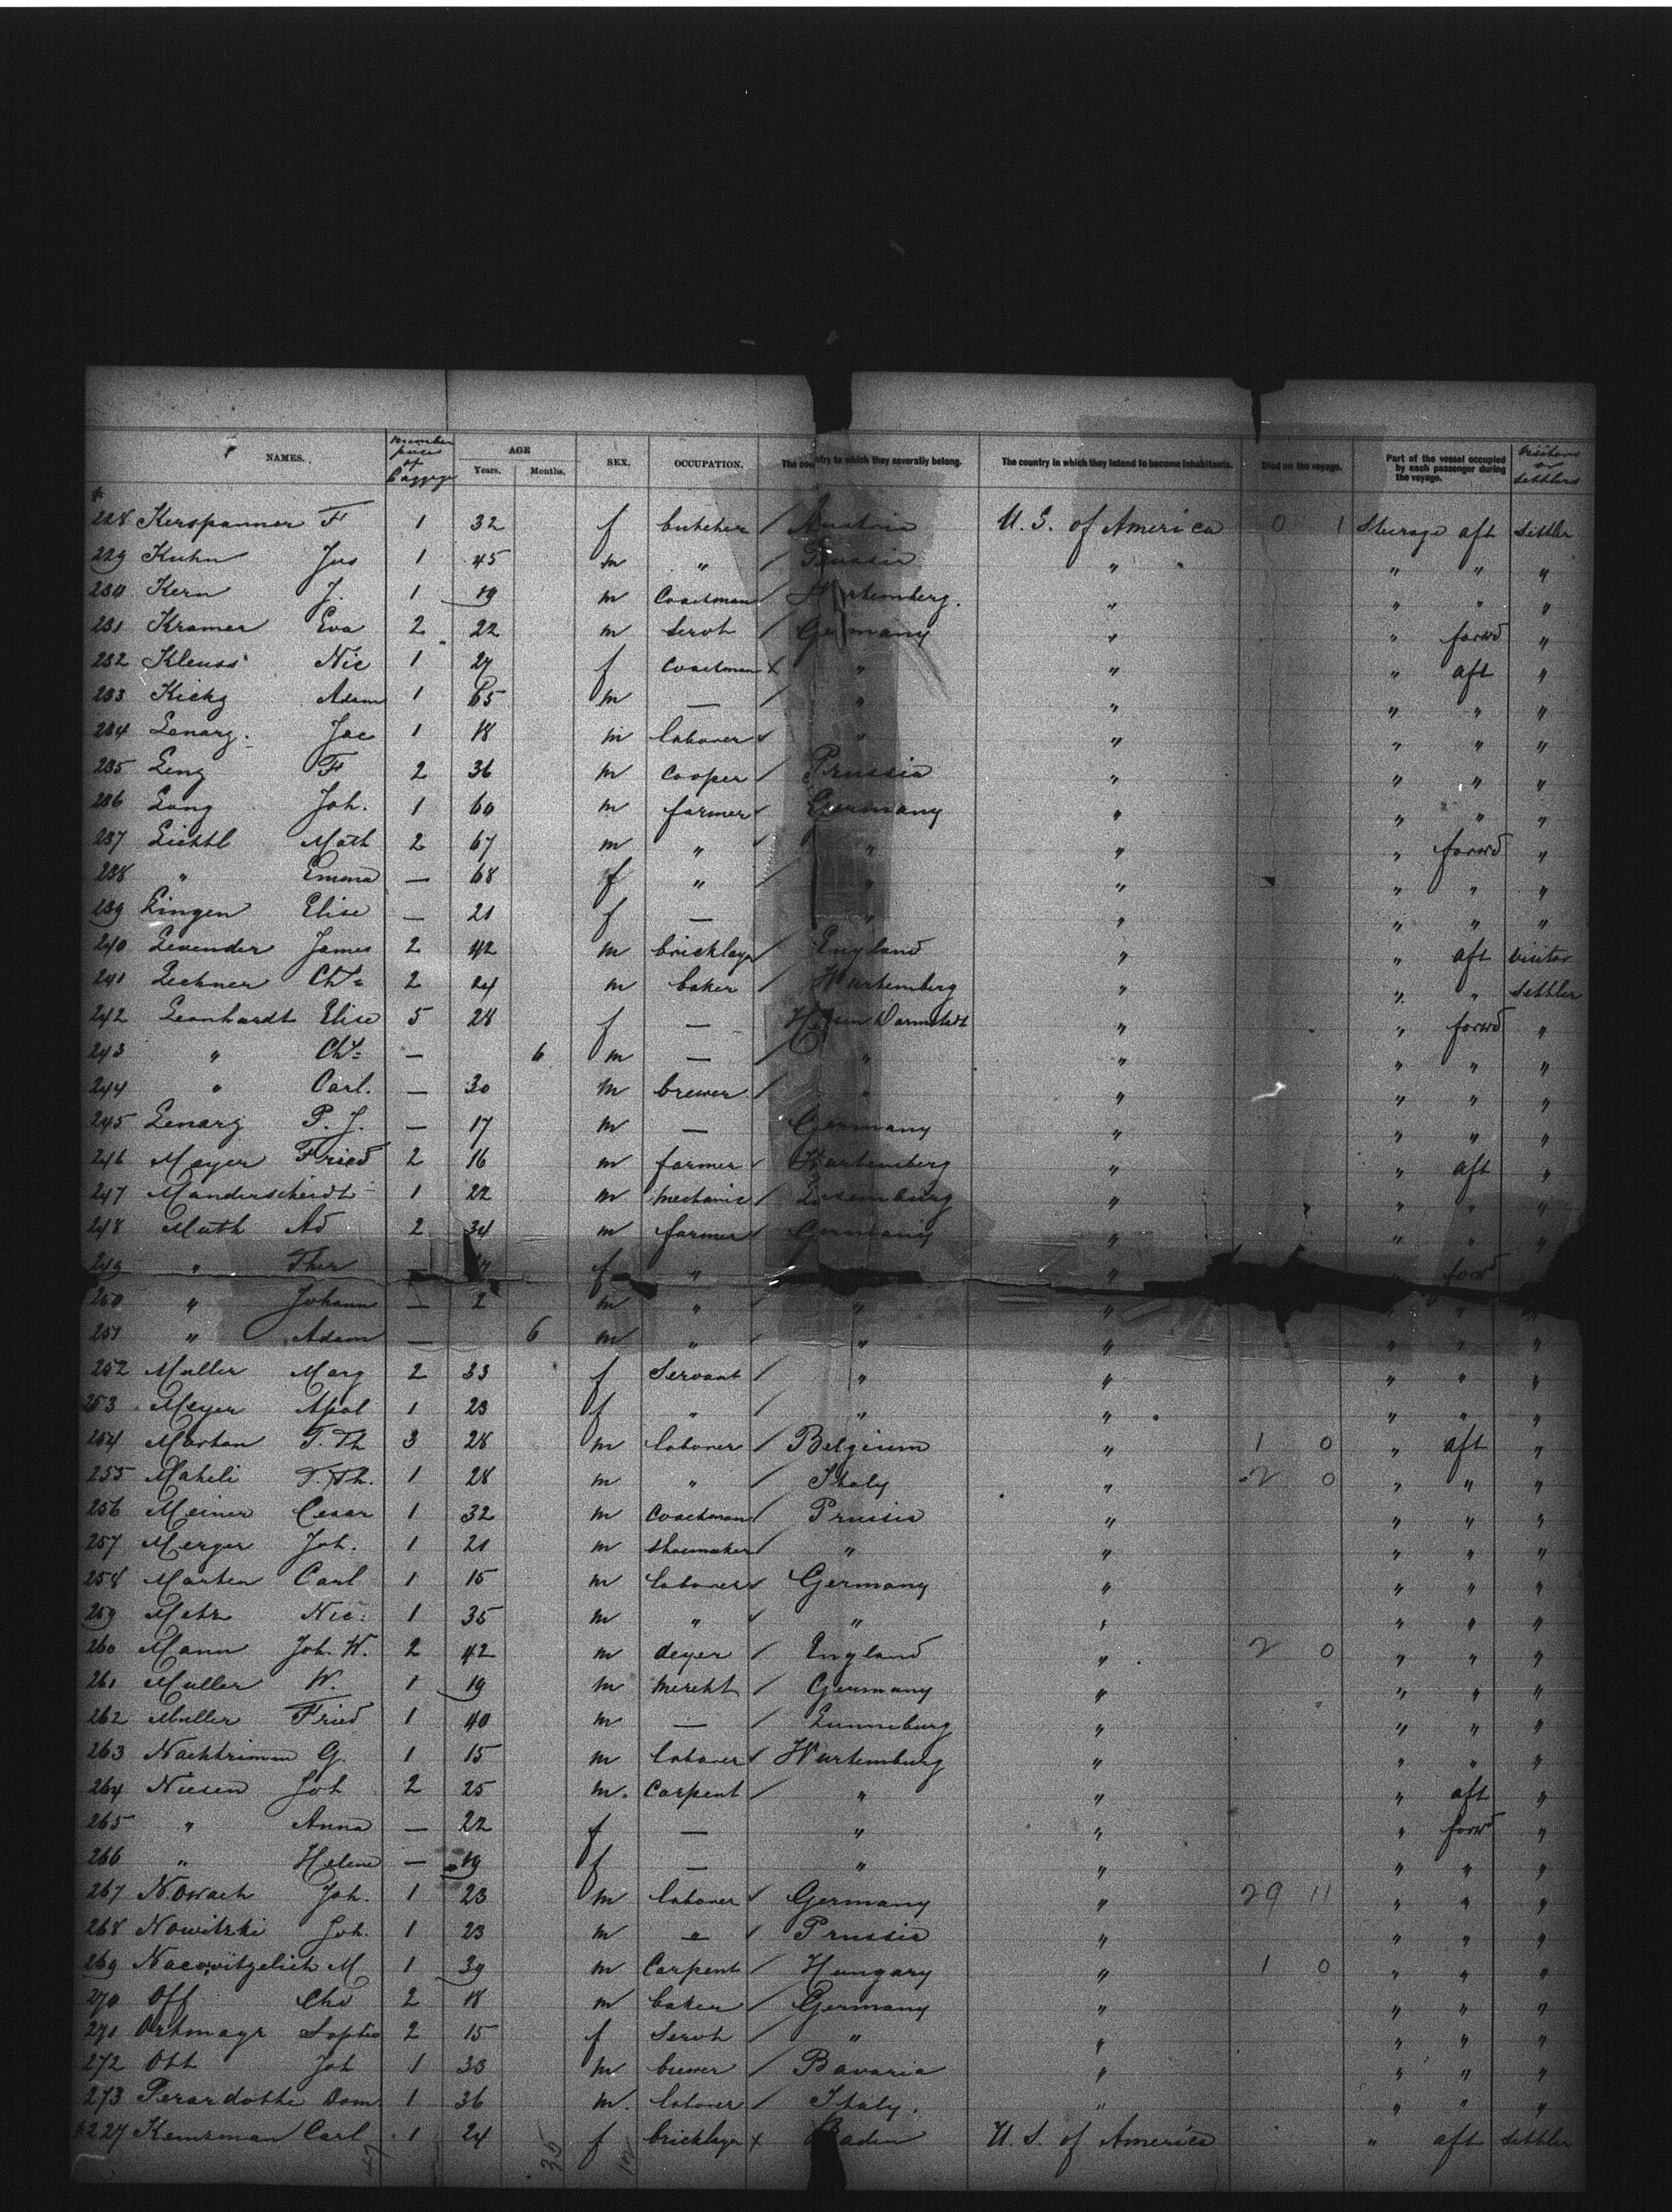 NAMES. Number pieces of Baggage AGE Years. Months. SEX. OCCUPATION. The country to which they severally belong. The country in which they intend to become inhabitants. Died on the voyage. Part of the vessel occupied by each passenger during the voyage. Visitors or Settlers
228 Kerspanner F 1 32 f butcher / Austria U. S. of America 0 1 Steerage aft settler
229 Kuhn Jus 1 45 m " / Prussia " " " "
230 Kern J. 1 19 m Coachman / Wurtemberg. " " " "
231 Kramer Eva 2 22 m servt / Germany " " forwd "
232 Kleuss Nic 1 27 f Coachman x " " " aft "
233 Kicky Adam 1 65 m — / " " " " "
234 Lenarz. Jac 1 18 m laborer " " " " "
235 Leng F 2 36 m Cooper / Prussia " " " "
236 Lang Joh. 1 60 m farmer Germany " " " "
237 Liehtl Math 2 67 m " " " " forwd "
238 " Emma — 68 f " / " " " " "
239 Lingen Elise — 21 f — " " " " "
240 Levender James 2 42 m bricklayr England " " aft visitor
241 Lechner Chr= 2 24 m baker / Wurtemberg " " " settler
242 Leonhardt Elise 5 28 f — Hessen Darmstadt " " forwd "
243 " Chr= — 6 m — / " " " " "
244 " Carl. — 30 m brewer / " " " " "
245 Lenarz P. J. — 17 m — Germany " " " "
246 Meyer Fried 2 16 m farmer Wurtemberg " " aft "
247 Manderscheidt 1 22 m mechanic / Luxemburg " " " "
248 Muth Ad 2 34 m farmer Germany " " " "
249 " Ther — f " " forwd
250 " Johann — 2 m " " " " " "
251 " Adam — 6 m " / " " " " "
252 Muller Marg 2 33 f Servant / " " " " "
253 Meyer Apol 1 23 f " / " " " " "
254 Martan T. Th 3 28 m laborer / Belgium " 1 0 " aft "
255 Maheli T. Th. 1 28 m " / Italy " 2 0 " " "
256 Meiner Cesar 1 32 m Coachman / Prussia " " " "
257 Merger Joh. 1 21 m shoemaker / " " " " "
258 Marten Carl 1 15 m laborer Germany " " " "
259 Metz Nic. 1 35 m " " " " " "
260 Mann Joh. W. 2 42 m deyer / England " 2 0 " " "
261 Muller W. 1 19 m Mercht / Germany " " " "
262 Muller Fried 1 40 m — / Lunneburg " " " "
263 Nachtrimm G. 1 15 m laborer Wurtemburg " " " "
264 Niesen Joh 2 25 m. Carpent / " " " aft "
265 " Anna — 22 f — " " " forwd "
266 " Helene — 19 f — " " " " "
267 Nowach Joh. 1 23 m laborer Germany " 29 11 " " "
268 Nowitzki Joh. 1 23 m / Prussia " " " "
269 M 1 39 m Carpent / Hungary " 1 0 " " "
270 Off Chr 2 18 m baker / Germany " " " "
271 Ortmayr Sophie 2 15 f Servt / " " " " "
272 Ott Joh 1 33 m brewer / Bavaria " " " "
273 Perardotthe Dom 1 36 m. laborer / Italy. " " " "
227 Kemsman Carl 1 24 f bricklayer x Baden U. S. of America " aft settler